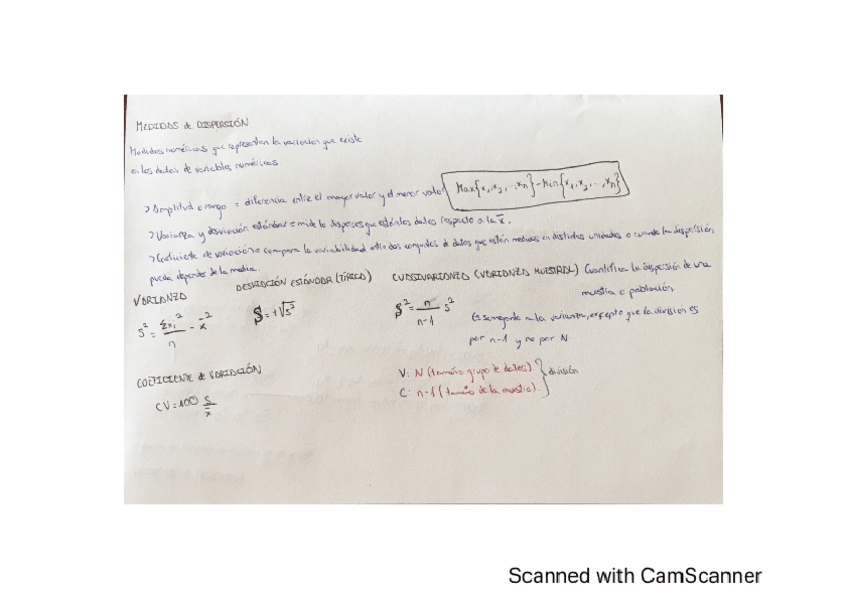 MEDIDAS de DISPERSIÓN
Medidas numéricas que representan la variación que existe
en los datos de variables numéricas.
> Amplitud o rango = diferencia entre el mayor valor y el menor valor Max{x₁,x₂,...,xₙ}-Min{x₁,x₂,...,xₙ}
> Varianza y desviación estándar = mide lo dispersos que están los datos respecto a la x̄.
> Coeficiente de variación = compara la variabilidad entre dos conjuntos de datos que están medidos en distintas unidades o cuando la dispersión
pueda depender de la media.
VARIANZA
S² = Σxᵢ²/n - x̄²
DESVIACIÓN ESTÁNDAR (TÍPICA)
S = +√S²
CUASIVARIANZA (VARIANZA MUESTRAL) Cuantifica la dispersión de una
muestra o población
S² = n/n-1 S²
Es semejante a la varianza, excepto que la división es
por n-1 y no por N.
COEFICIENTE de VARIACIÓN
CV = 100 S/x̄
V: N (tamaño grupo de datos).
C: n-1 (tamaño de la muestra).
} división
Scanned with CamScanner